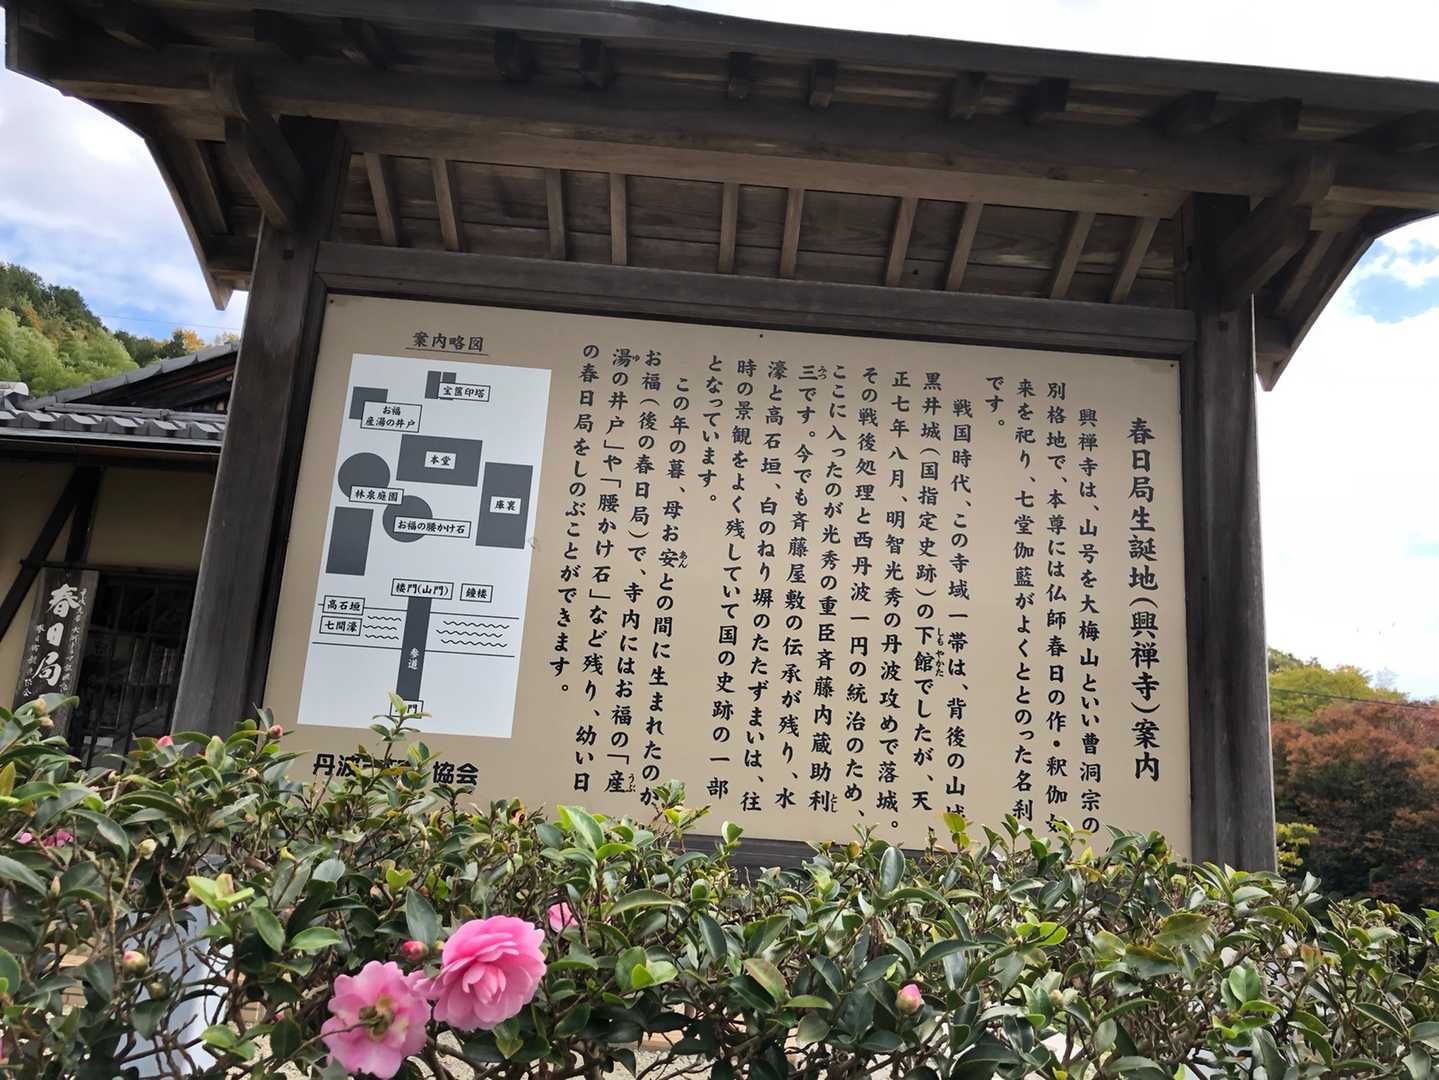 春日局生誕地(興禅寺)案内
興禅寺は、山号を大梅山といい曹洞宗の
別格地で、本尊には仏師春日の作・釈迦如
来を祀り、七堂伽藍がよくととのった名刹
です。
戦国時代、この寺域一帯は、背後の山城
黒井城(国指定史跡)の下館でしたが、天
しもやかた
正七年八月、明智光秀の丹波攻めで落城。
その戦後処理と西丹波一円の統治のため、
ここに入ったのが光秀の重臣斉藤内蔵助利
三です。今でも斉藤屋敷の伝承が残り、水
濠と高石垣、白のねり塀のたたずまいは、往
時の景観をよく残していて国の史跡の一部
となっています。
この年の暮、母お安との間に生まれたのが
あん
お福(後の春日局)で、寺内にはお福の「産
うぶ
湯の井戸」や「腰かけ石」など残り、幼い日
ゆ
の春日局をしのぶことができます。
案内略図
宝篋印塔
お福
産湯の井戸
本堂
庫裏
林泉庭園
お福の腰かけ石
楼門(山門)
鐘楼
高石垣
七間濠
参道
門
丹波
協会
春日局